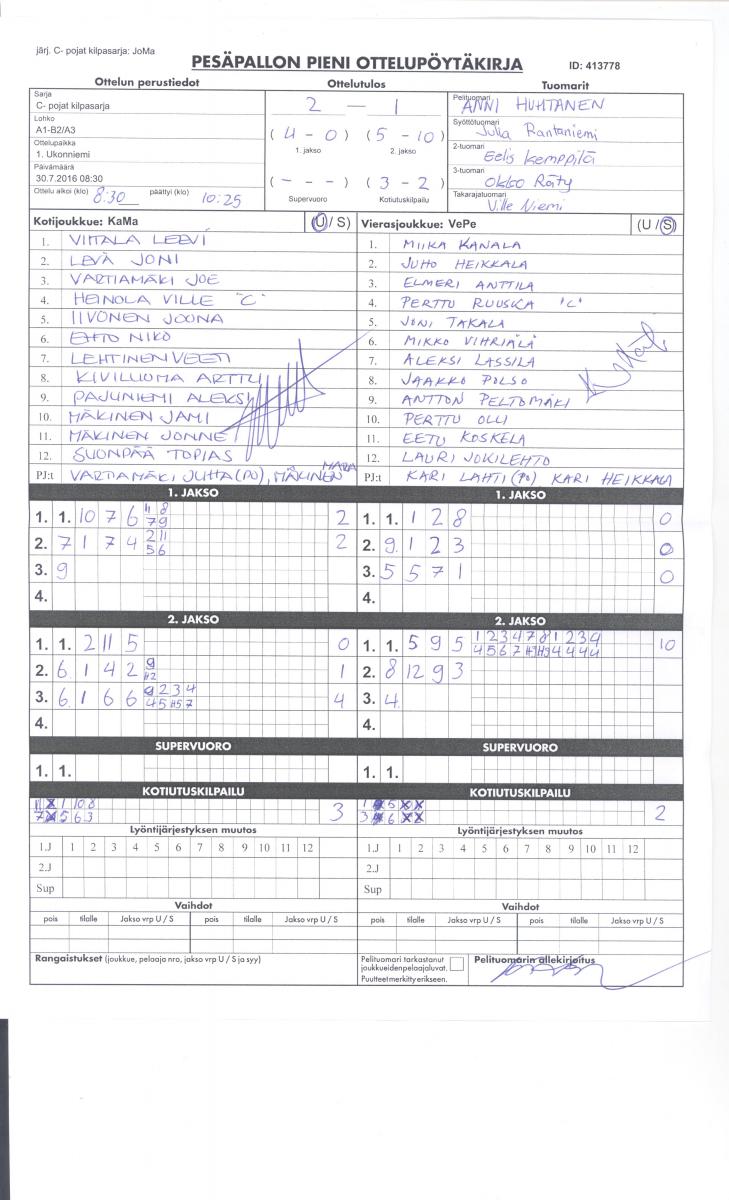 järj. C- pojat kilpasarja: JoMa
PESÄPALLON PIENI OTTELUPÖYTÄKIRJA ID: 413778
Ottelun perustiedot Ottelutulos Tuomarit
Sarja
C- pojat kilpasarja
Lohko
A1-B2/A3
Ottelupaikka
1. Ukonniemi
Päivämäärä
30.7.2016 08:30
Ottelu alkoi (klo) 8:30 päättyi (klo) 10:25
2 — 1
(4 - 0) (5 - 10)
1. jakso 2. jakso
(- - -) (3 - 2)
Supervuoro Kotiutuskilpailu
Pelituomari ANNI HUHTANEN
Syöttötuomari Julia Rantaniemi
2-tuomari Eelis Kemppilä
3-tuomari Okko Räty
Takarajatuomari Ville Niemi
Kotijoukkue: KaMa (U / S)
1. VIITALA LEEVI
2. LEVÄ JONI
3. VARTIAMÄKI JOE
4. HEINOLA VILLE "C"
5. IIVONEN JOONA
6. EHTO NIKO
7. LEHTINEN VEETI
8. KIVILUOMA ARTTU
9. PAJUNIEMI ALEKSI
10. MÄKINEN JAMI
11. MÄKINEN JONNE
12. SUONPÄÄ TOPIAS
PJ:t VARTIAMÄKI JUHA (PO), MÄKINEN
Vierasjoukkue: VePe (U / S)
1. MIIKA KANALA
2. JUHO HEIKKALA
3. ELMERI ANTTILA
4. PERTTU RUUSKA "C"
5. JONI TAKALA
6. MIKKO VIHRIÄLÄ
7. ALEKSI LASSILA
8. JAAKKO POLSO
9. ANTTON PELTOMÄKI
10. PERTTU OLLI
11. EETU KOSKELA
12. LAURI JOKILEHTO
PJ:t KARI LAHTI (PO) KARI HEIKKALA
1. JAKSO
1. 1. 10 7 6 11 8 2
7 9
2. 7 1 7 4 2 11 2
5 6
3. 9
4.
1. JAKSO
1. 1. 1 2 8 0
2. 9 1 2 3 0
3. 5 5 7 1 0
4.
2. JAKSO
1. 1. 2 11 5 0
2. 6 1 4 2 9 1
3. 6 1 6 6 9 2 3 4 4
4.
2. JAKSO
1. 1. 5 9 5 1 2 3 4 7 8 1 2 3 4 10
2. 8 12 9 3
3. 4
4.
SUPERVUORO
1. 1.
SUPERVUORO
1. 1.
KOTIUTUSKILPAILU
3
KOTIUTUSKILPAILU
2
Lyöntijärjestyksen muutos
1.J 1 2 3 4 5 6 7 8 9 10 11 12
2.J
Sup
Lyöntijärjestyksen muutos
1.J 1 2 3 4 5 6 7 8 9 10 11 12
2.J
Sup
Vaihdot
pois tilalle Jakso vrp U / S pois tilalle Jakso vrp U / S
Vaihdot
pois tilalle Jakso vrp U / S pois tilalle Jakso vrp U / S
Rangaistukset (joukkue, pelaaja nro, jakso vrp U / S ja syy)
Pelituomari tarkastanut
joukkueidenpelaajaluvat.
Puutteet merkitty erikseen.
Pelituomarin allekirjoitus